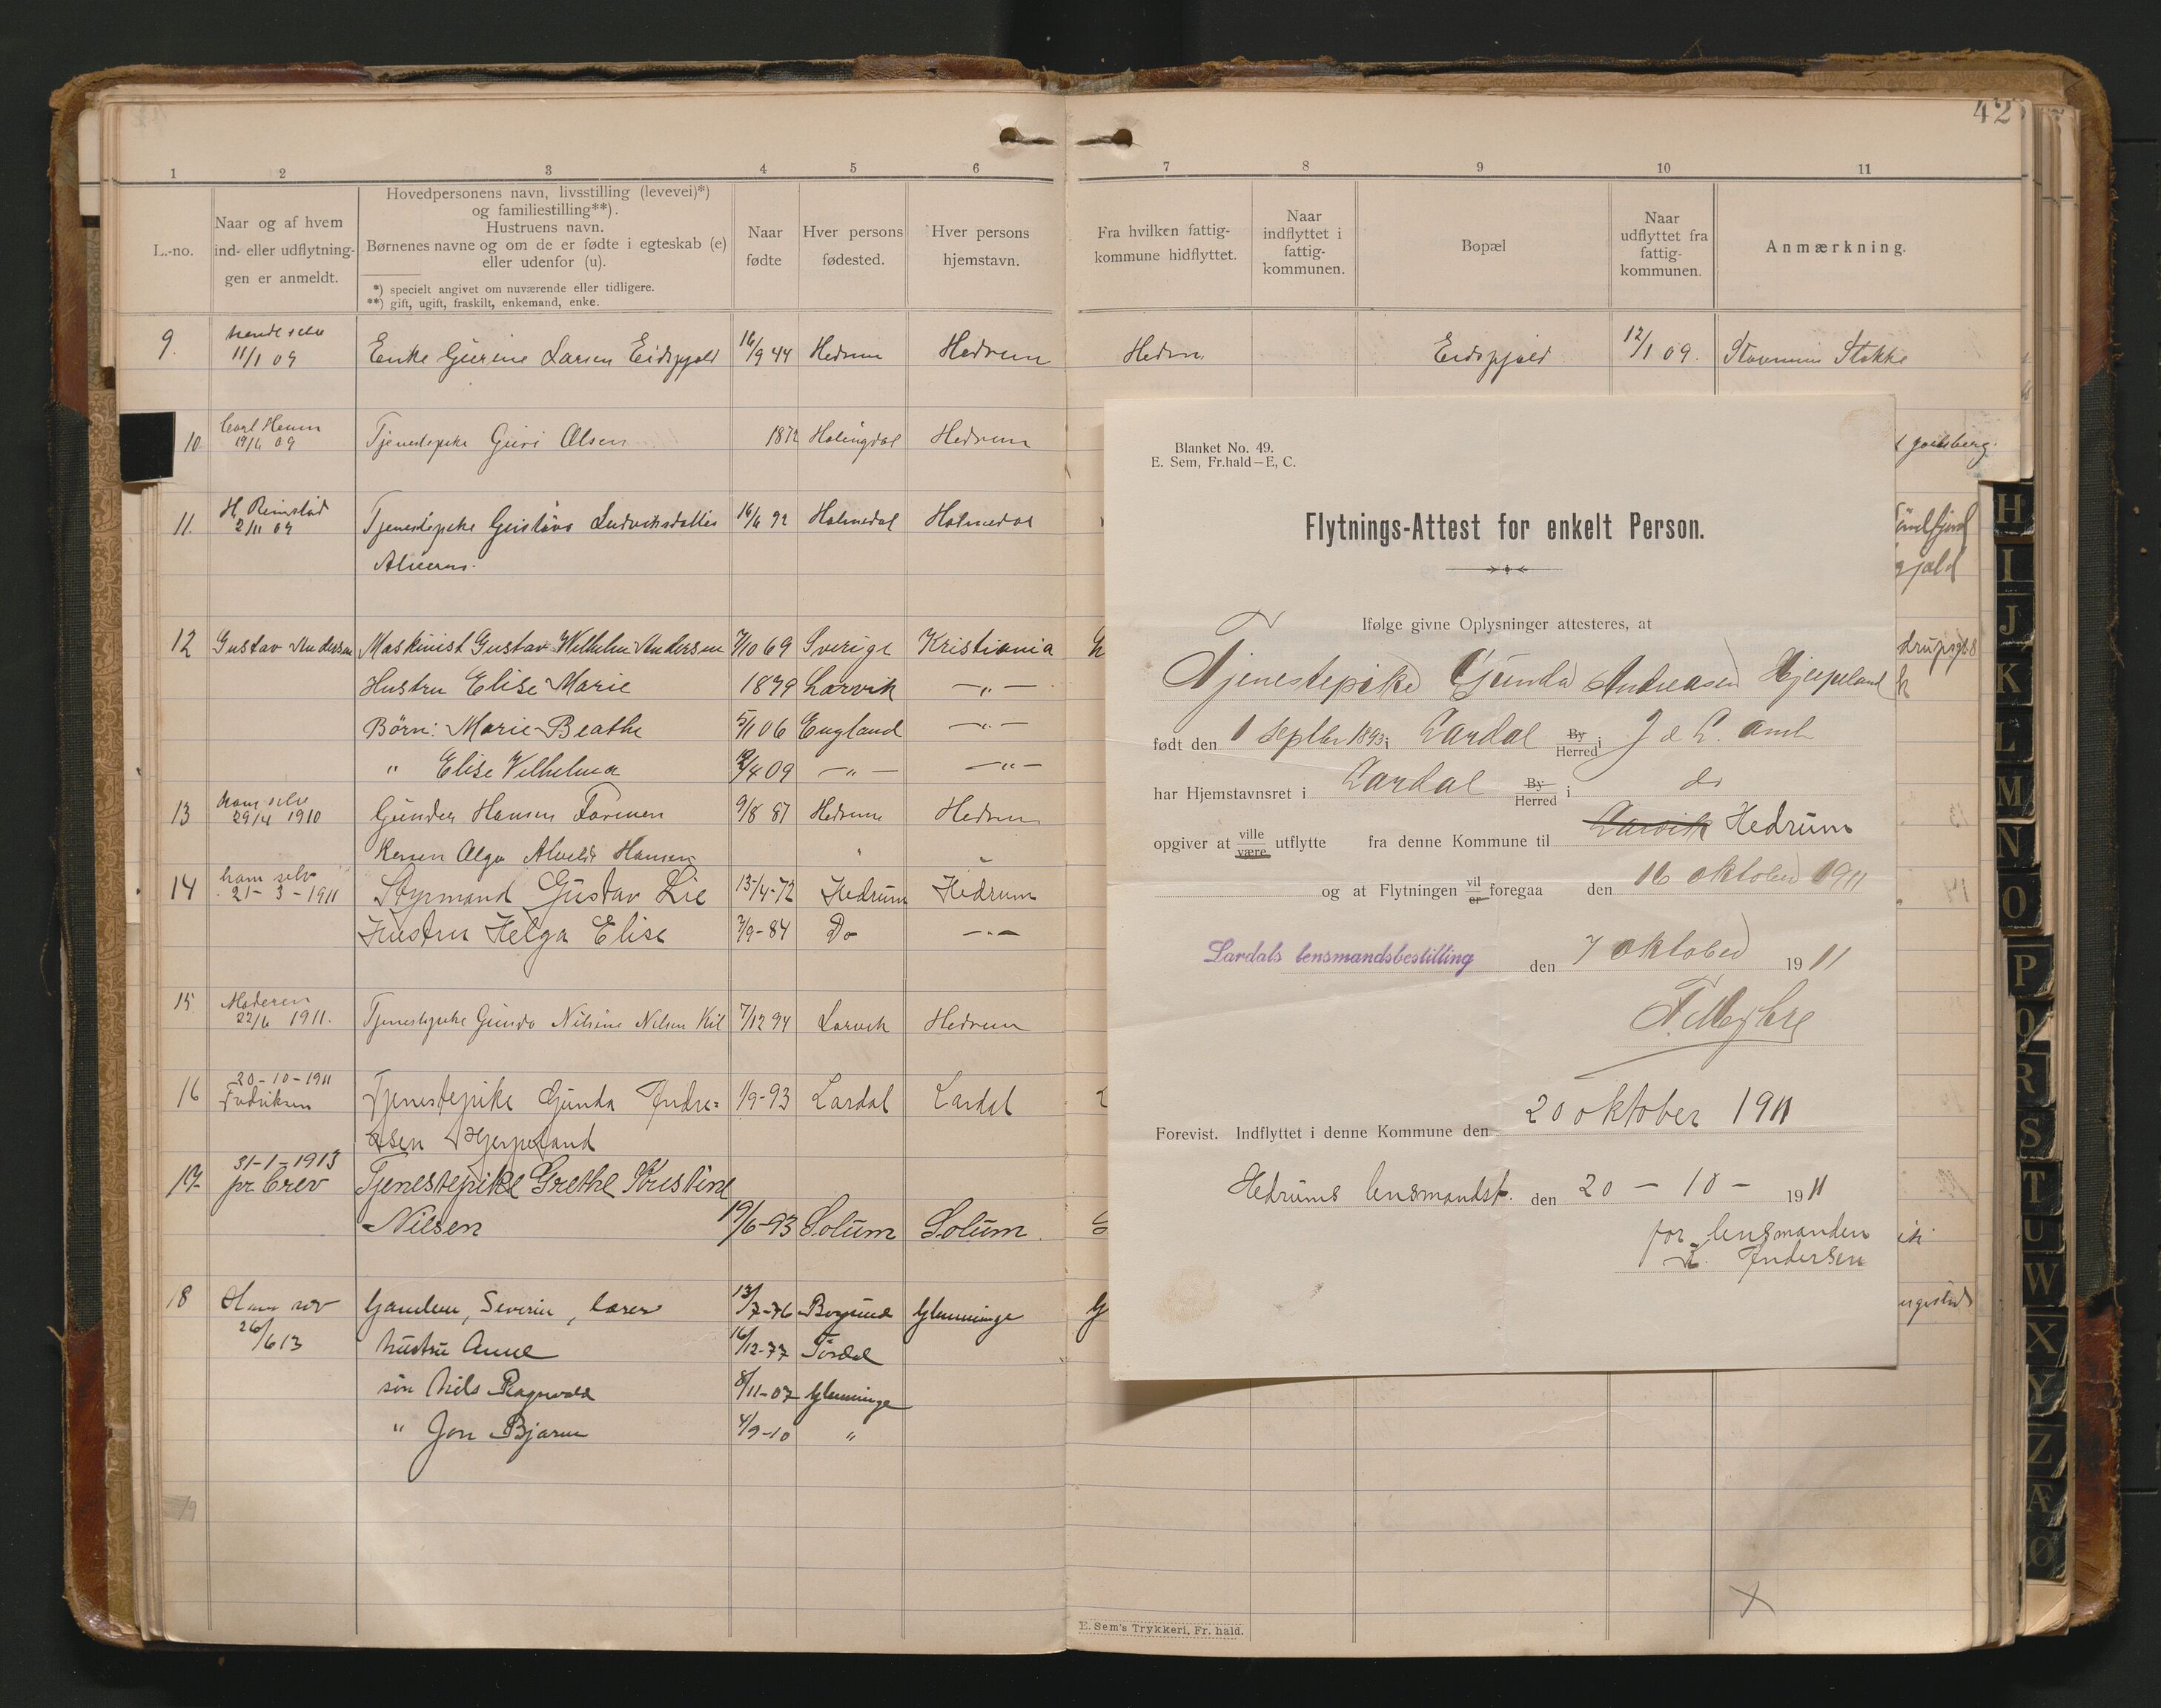 42
1 2 3 4 5 6 7 8 9 10 11
L.-no.
Naar og af hvem
ind- eller udflytning-
gen er anmeldt.
Hovedpersonens navn, livsstilling (levevei)*)
og familiestilling**).
Hustruens navn.
Børnenes navne og om de er fødte i egteskab (e)
eller udenfor (u).
*) specielt angivet om nuværende eller tidligere.
**) gift, ugift, fraskilt, enkemand, enke.
Naar
fødte
Hver persons
fødested.
Hver persons
hjemstavn.
Fra hvilken fattig-
kommune hidflyttet.
Naar
indflyttet i
fattig-
kommunen.
Bopæl
Naar
udflyttet fra
fattig-
kommunen.
Anmærkning.
9. 11/1 09 Enke Gurine Larsen Eidsfjeld 16/9 44 Hedrum Hedrum Hedrum Eidsfjeld 12/1 09. Stokke
10 19/6 09 Tjenestepike Guri Olsen 1872 Halingdal Hedrum
11. H. Rimstad 2/11 09 Tjenestepike Gustava Ludviksdatter 16/6 92 Holmedal Holmedal
12 Gustav Andersen Maskinist Gustav Wilhelm Andersen 7/10 69 Sverige Kristiania
Hustru Elise Marie 1879 Larvik —„—
Børn: Marie Beathe 5/1 06 England —„—
„ Elise Vilhelmea /4 09 —„— —„—
13 ham selv 29/4 1910 Gunder Hansen Farmen 9/8 87 Hedrum Hedrum
Olga Hansen „
14 ham selv 21-3-1911 Styrmand Gustav Lie 13/4-72 Hedrum Hedrum
Hustru Helga Elise 7/9-84 Do —„—
15 Moderen 22/6 1911. Tjenestepike Gunda Nilsine Nilsen Kil 7/12 94 Larvik Hedrum
16 20-10-1911 Fredriksen Tjenestepike Gunda Andre=
asen Hjerpeland 1/9-93 Lardal Lardal
17 31-1-1913 pr brev Tjenestepike Grethe Kristine
Nilsen 19/6-93 Solum Solum
18 Ham selv 26/6 13 Gamlem, Severin, lærer 13/7-76 Borgund Glemminge
hustru Anne 16/12-77
søn Nils Ragnvald 8/11-07 Glemminge
„ Jon Bjarne 4/9-10 „
19
E. Sem's Trykkeri, Fr. hald.
Blanket No. 49.
E. Sem, Fr.hald—E, C.
Flytnings-Attest for enkelt Person.
Ifølge givne Oplysninger attesteres, at
Tjenestepike Gunda Andreasen Hjerpeland
født den 1 Septbr 1893 i Lardal By Herred i J & L. amt
har Hjemstavnsret i Lardal By Herred i do
opgiver at ville være utflytte fra denne Kommune til Larvik Hedrum
og at Flytningen vil er foregaa den 16 oktober 1911
Lardals lensmandsbestilling den 7 oktober 1911
Forevist. Indflyttet i denne Kommune den 20 oktober 1911
Hedrums lensmandsb. den 20 — 10 — 1911
for lensmanden
Andersen
H
I
J
K
L
M
N
O
P
Q
R
S
T
U
W
X
Y
Z
Æ
Ø